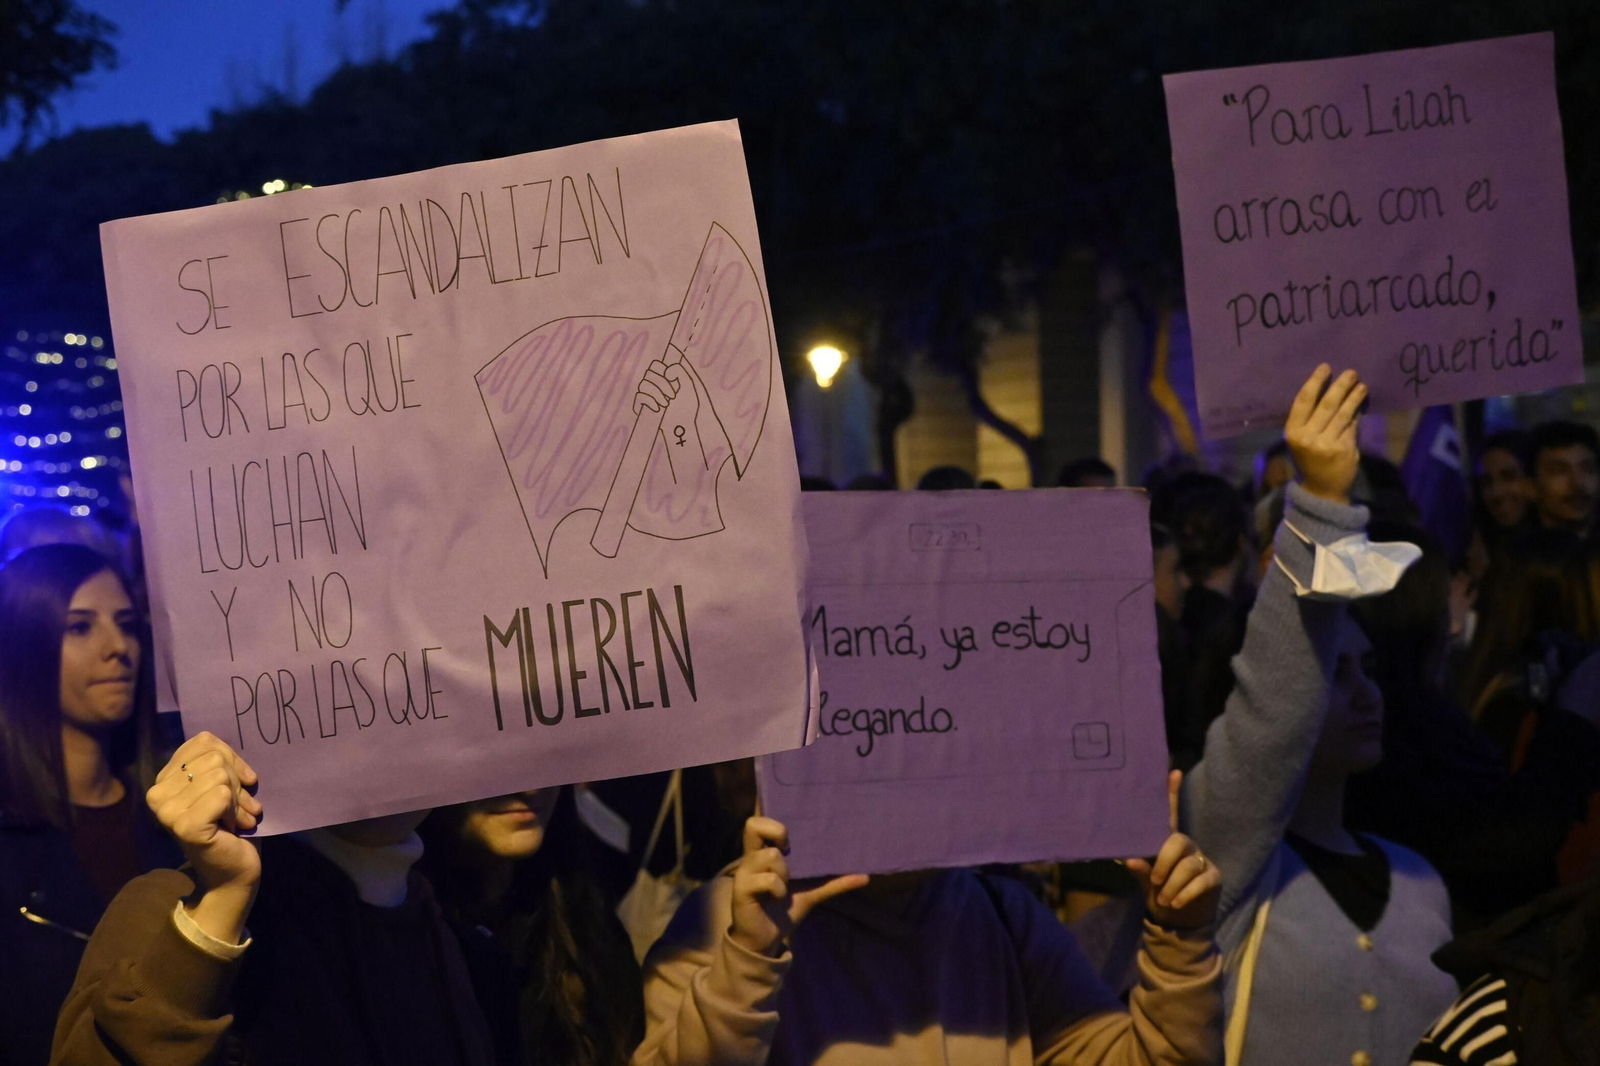 SE ESCANDALIZAN
POR LAS QUE
LUCHAN
Y NO
POR LAS QUE MUEREN
22:30
Mamá, ya estoy
llegando.
"Para Lilah
arrasa con el
patriarcado,
querida"